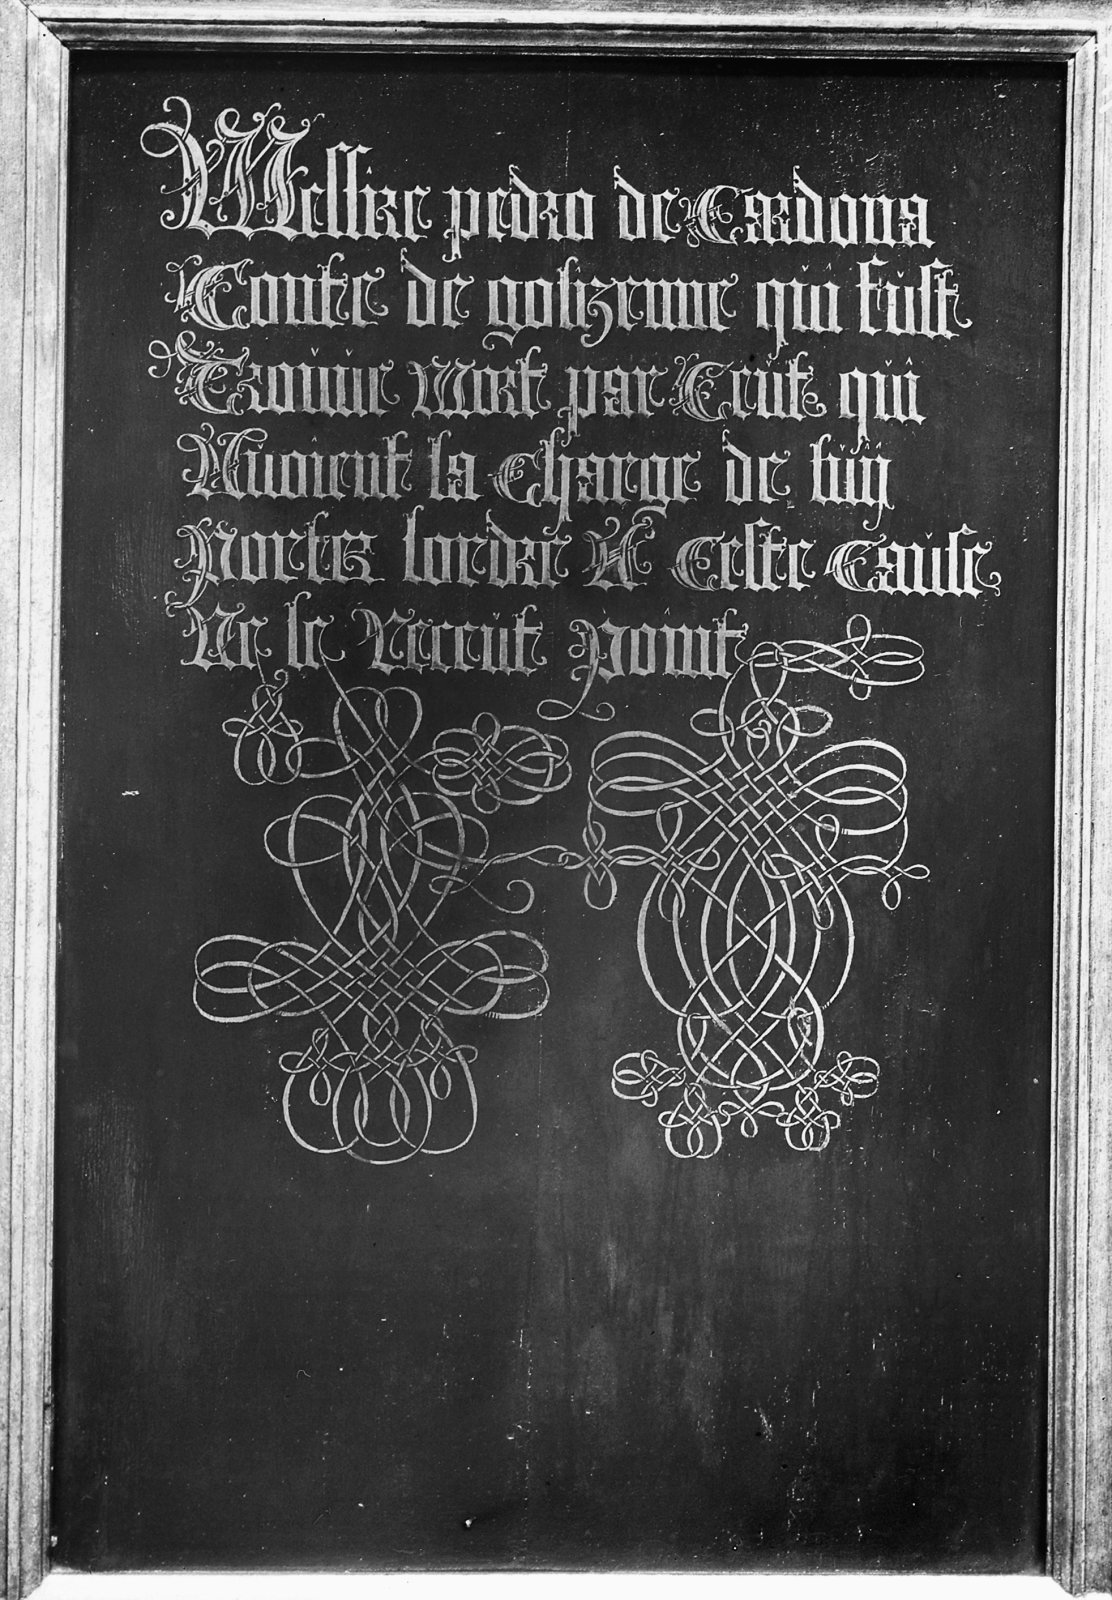 Messire pedro de Cardona
Conte de golizenne qui fust
Trouue Mort par Ceux qui
Auoient la Charge de luy
Porter lordre Et Ceste Cause
Ne le Receut point